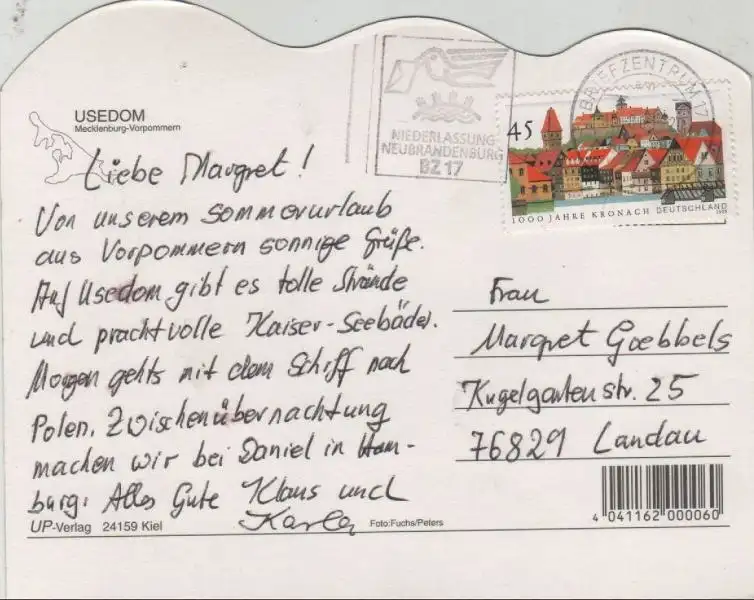 USEDOM
Mecklenburg-Vorpommern
Liebe Margret!
Von unserem Sommerurlaub
aus Vorpommern sonnige Grüße.
Auf Usedom gibt es tolle Strände
und prachtvolle Kaiser-Seebäder.
Morgen gehts mit dem Schiff nach
Polen. Zwischenübernachtung
machen wir bei Daniel in Ham-
burg. Alles Gute Klaus und
Karla
UP-Verlag 24159 Kiel
Foto:Fuchs/Peters
NIEDERLASSUNG
NEUBRANDENBURG
BZ 17
BRIEFZENTRUM 17
45
1000 JAHRE KRONACH DEUTSCHLAND
Frau
Margret Goebbels
Kugelgartenstr. 25
76829 Landau
4 041162 000060